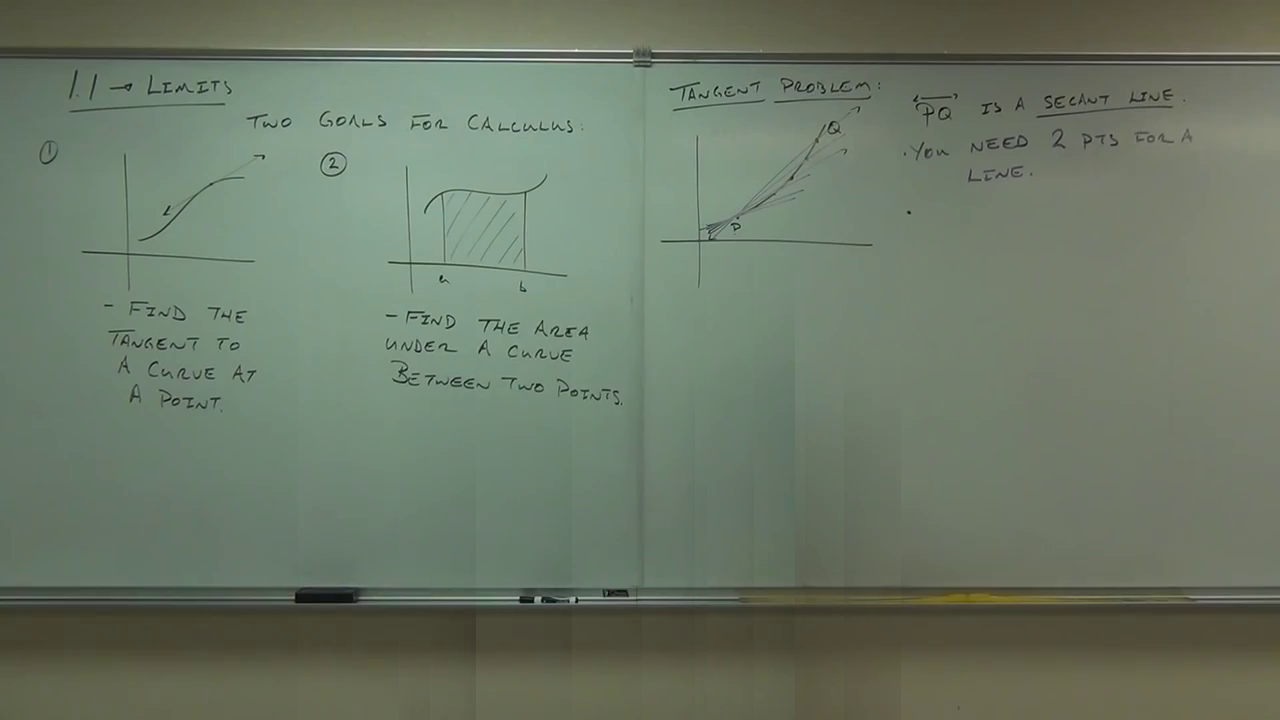 1.1 → LIMITS
TWO GOALS FOR CALCULUS:
①
②
a
b
- FIND THE
TANGENT TO
A CURVE AT
A POINT.
- FIND THE AREA
UNDER A CURVE
BETWEEN TWO POINTS.
TANGENT PROBLEM:
Q
P
PQ IS A SECANT LINE.
· YOU NEED 2 PTS FOR A
LINE.
·